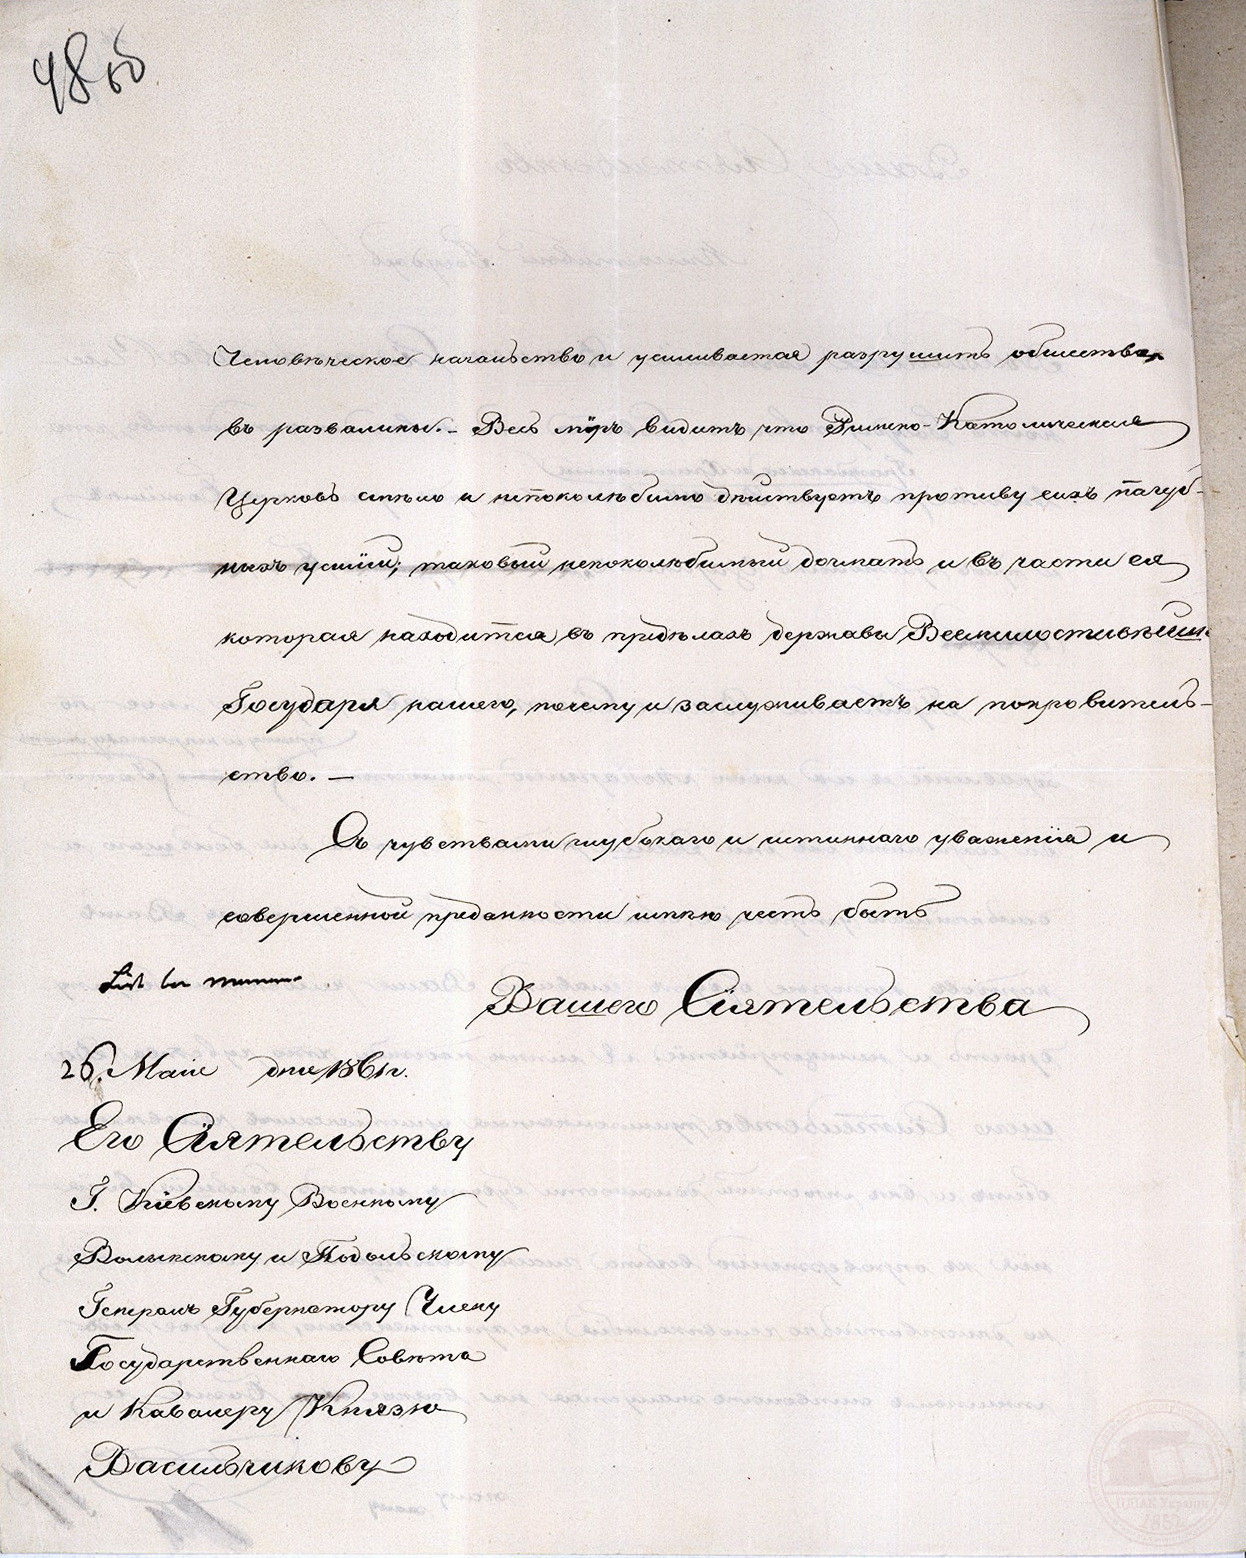 48 об
Человѣческое начальство и усиливается разрушить общества
въ развалины. – Весь міръ видитъ что Римско-Католическая
Церковь смѣло и непоколѣбимо дѣйствуетъ противу сихъ пагуб-
ныхъ усилій; таковый непоколѣбимый догматъ и въ части ея
которая находится въ предѣлахъ державы Всемилостивѣйш
Государя нашего, почему и заслуживаетъ на покровитель-
ство. –
Съ чувствами глубокаго и истиннаго уваженія и
совершенной преданности имѣю честь быть
Вашего Сіятельства
26. Маіе дня 1861 г.
Его Сіятельству
Г. Кіевскому Военному
Волынскому и Подольскому
Генералъ Губернатору Члену
Государственнаго Совѣта
и Кавалеру Князю
Васильчикову
ЦДІАК України
1852